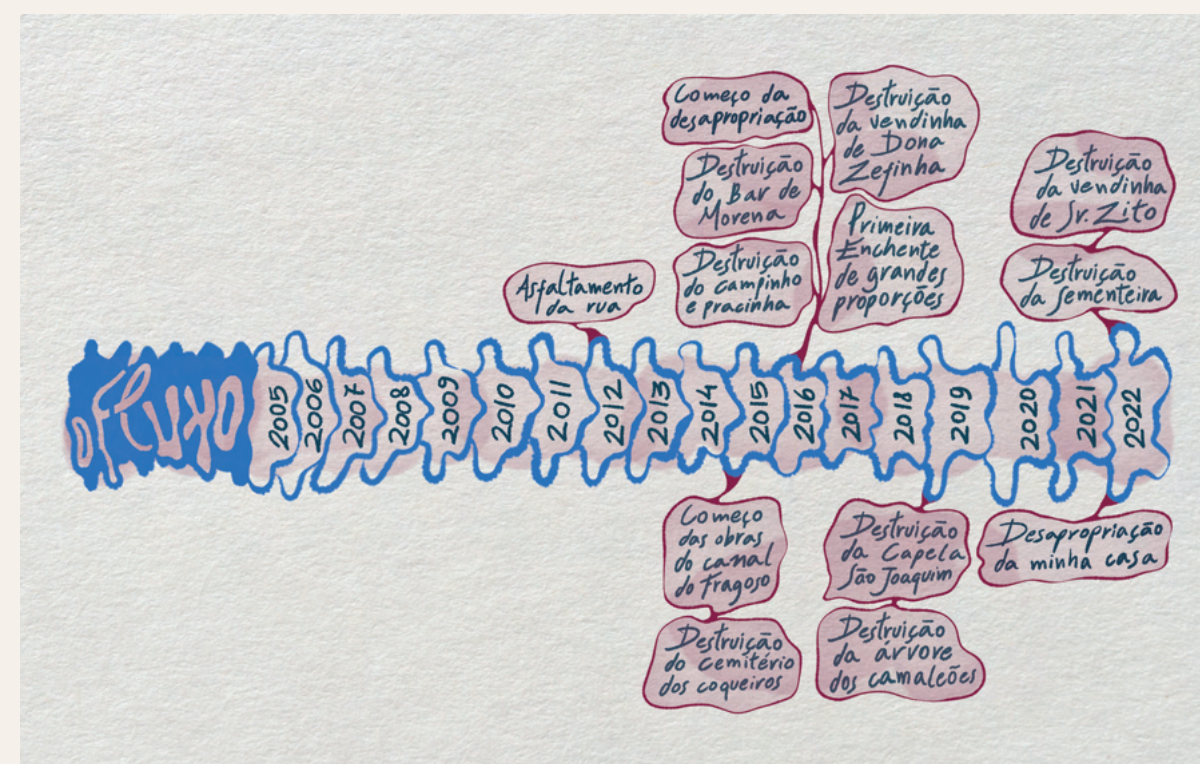 o Fluxo
2005
2006
2007
2008
2009
2010
2011
2012
2013
2014
2015
2016
2017
2018
2019
2020
2021
2022
Asfaltamento
da rua
Começo da
desapropriação
Destruição
do Bar de
Morena
Destruição
do campinho
e pracinha
Destruição
da vendinha
de Dona
Zefinha
Primeira
Enchente
de grandes
proporções
Destruição
da vendinha
de Sr. Zito
Destruição
da sementeira
Começo
das obras
do canal
do Fragoso
Destruição
do cemitério
dos coqueiros
Destruição
da Capela
São Joaquim
Destruição
da árvore
dos camaleões
Desapropriação
da minha casa